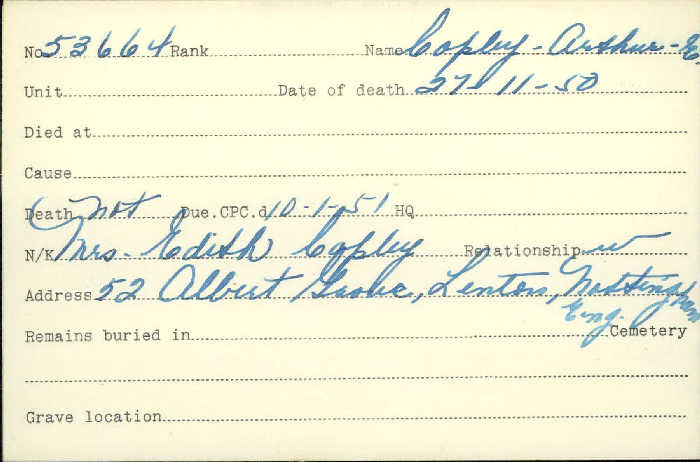 No 53664 Rank Name Copley - Arthur - E.
Unit Date of death 27-11-50
Died at
Cause
Death not Due. CPC.d 10-1-51 HQ
N/K Mrs - Edith Copley Relationship w
Address 52 Albert Grove, Lenton, Nottingham
Eng.
Remains buried in Cemetery
Grave location